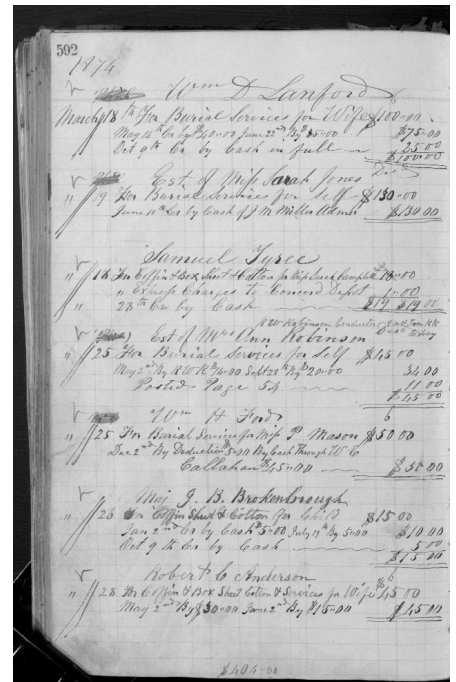 592
1874
Wm D Lanford
March 18th For Burial Services for Wife $100-00
May 14th Cr By $40-00 June 22nd By $35-00 $75-00
Oct 9th Cr by Cash in full 25-00
$100-00
Est of Miss Sarah Jones Decd
" 19 For Burial Services for Self $130-00
June 11th Cr by Cash of J M Miller Admr $130-00
Samuel Tyree
" 18 For Coffin & Box Sheet & Cotton for Miss Campbell 18-00
" Express Charges to Concord Depot 1-00
28th Cr by Cash $19 $19-00
R W Robinson Conductor East Tenn RR
Est of Mrs Ann Robinson Decd
" 25 For Burial Services for Self $45-00
May 2nd By R W R $14-00 Sept 25th By $20-00 34 00
Posted Page 54 11 00
$45-00
Wm H Ford
" 25 For Burial Services for Miss P. Mason $50-00
Dec 2nd By Deduction 5-00 By Cash Through W C
Callahan $45-00 $50-00
Maj J. B. Brokenbrough
" 26 For Coffin Sheet & Cotton for Child $15-00
Jan 2nd Cr by Cash $5-00 July 19th By 5-00 $10 00
Oct 9th Cr by Cash 5-00
$15 00
Robert C Anderson
" 28 For Coffin & Box Sheet Cotton & Services for Wife $45 00
May 2nd By $30-00 June 2nd By $15-00 $45 00
$404-00